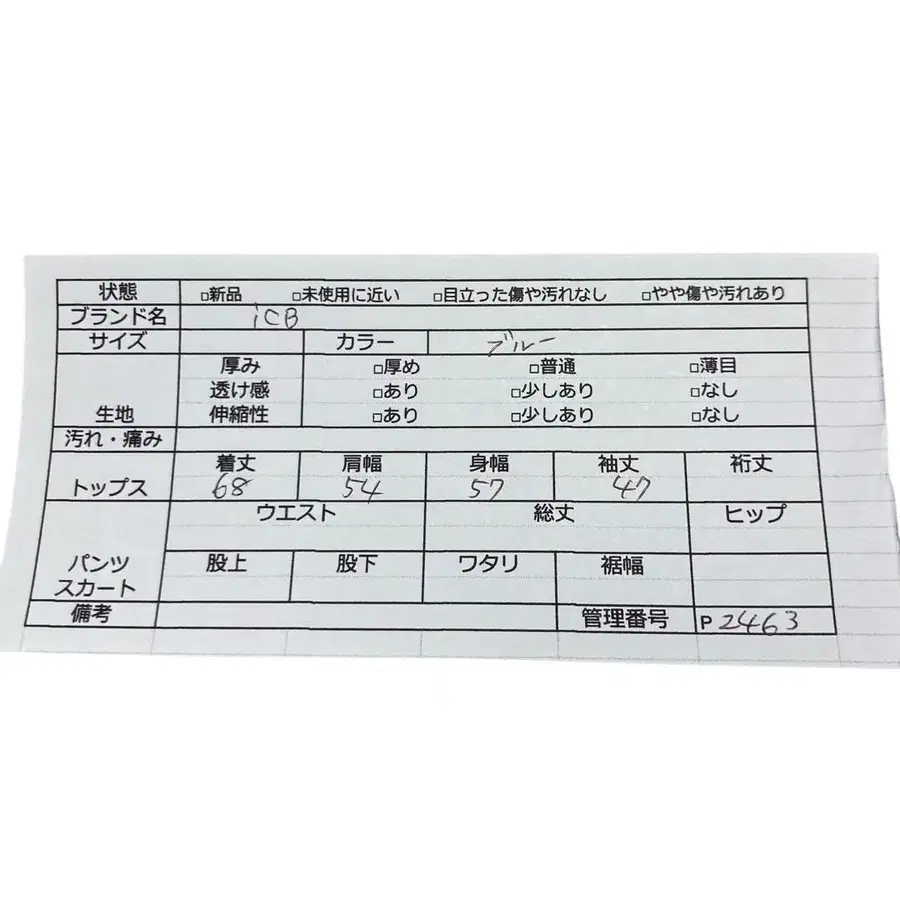 状態 □新品 □未使用に近い □目立った傷や汚れなし □やや傷や汚れあり
ブランド名 iCB
サイズ カラー ブルー
厚み □厚め □普通 □薄目
透け感 □あり □少しあり □なし
生地 伸縮性 □あり □少しあり □なし
汚れ・痛み
着丈 肩幅 身幅 袖丈 裄丈
トップス 68 54 57 47
ウエスト 総丈 ヒップ
パンツ 股上 股下 ワタリ 裾幅
スカート
備考 管理番号 P 2463